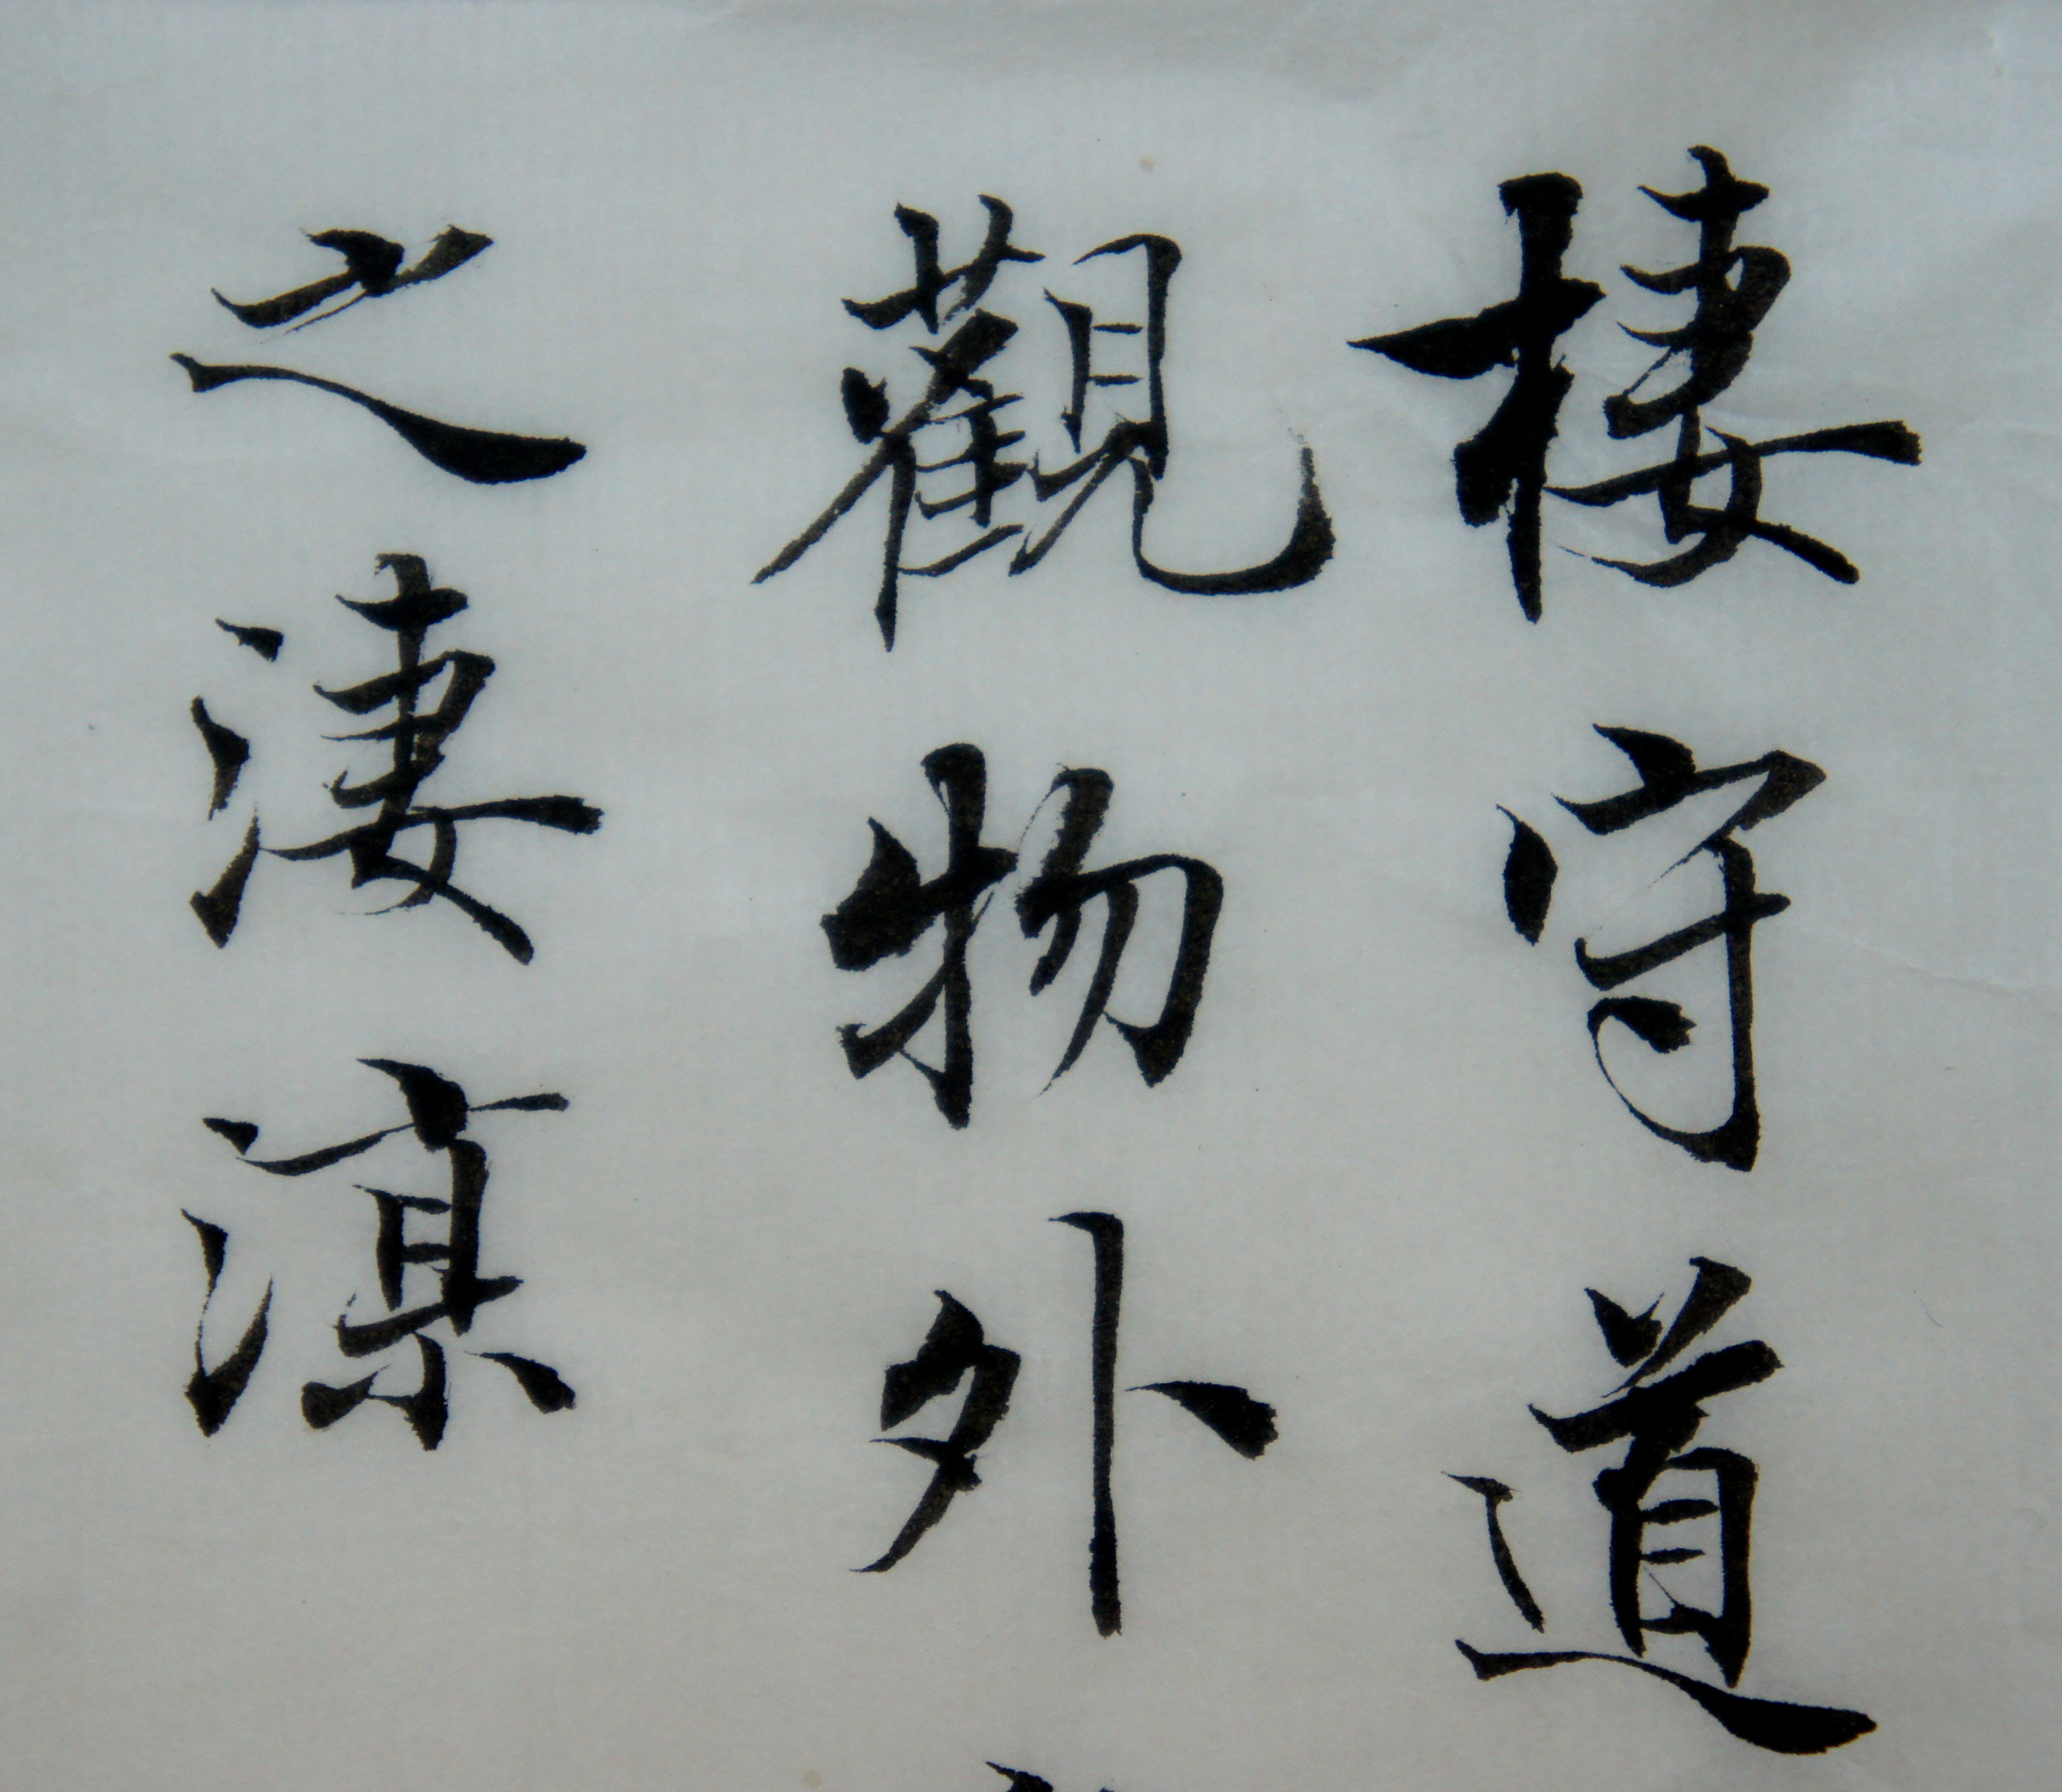 棲守道
觀物外
之淒涼